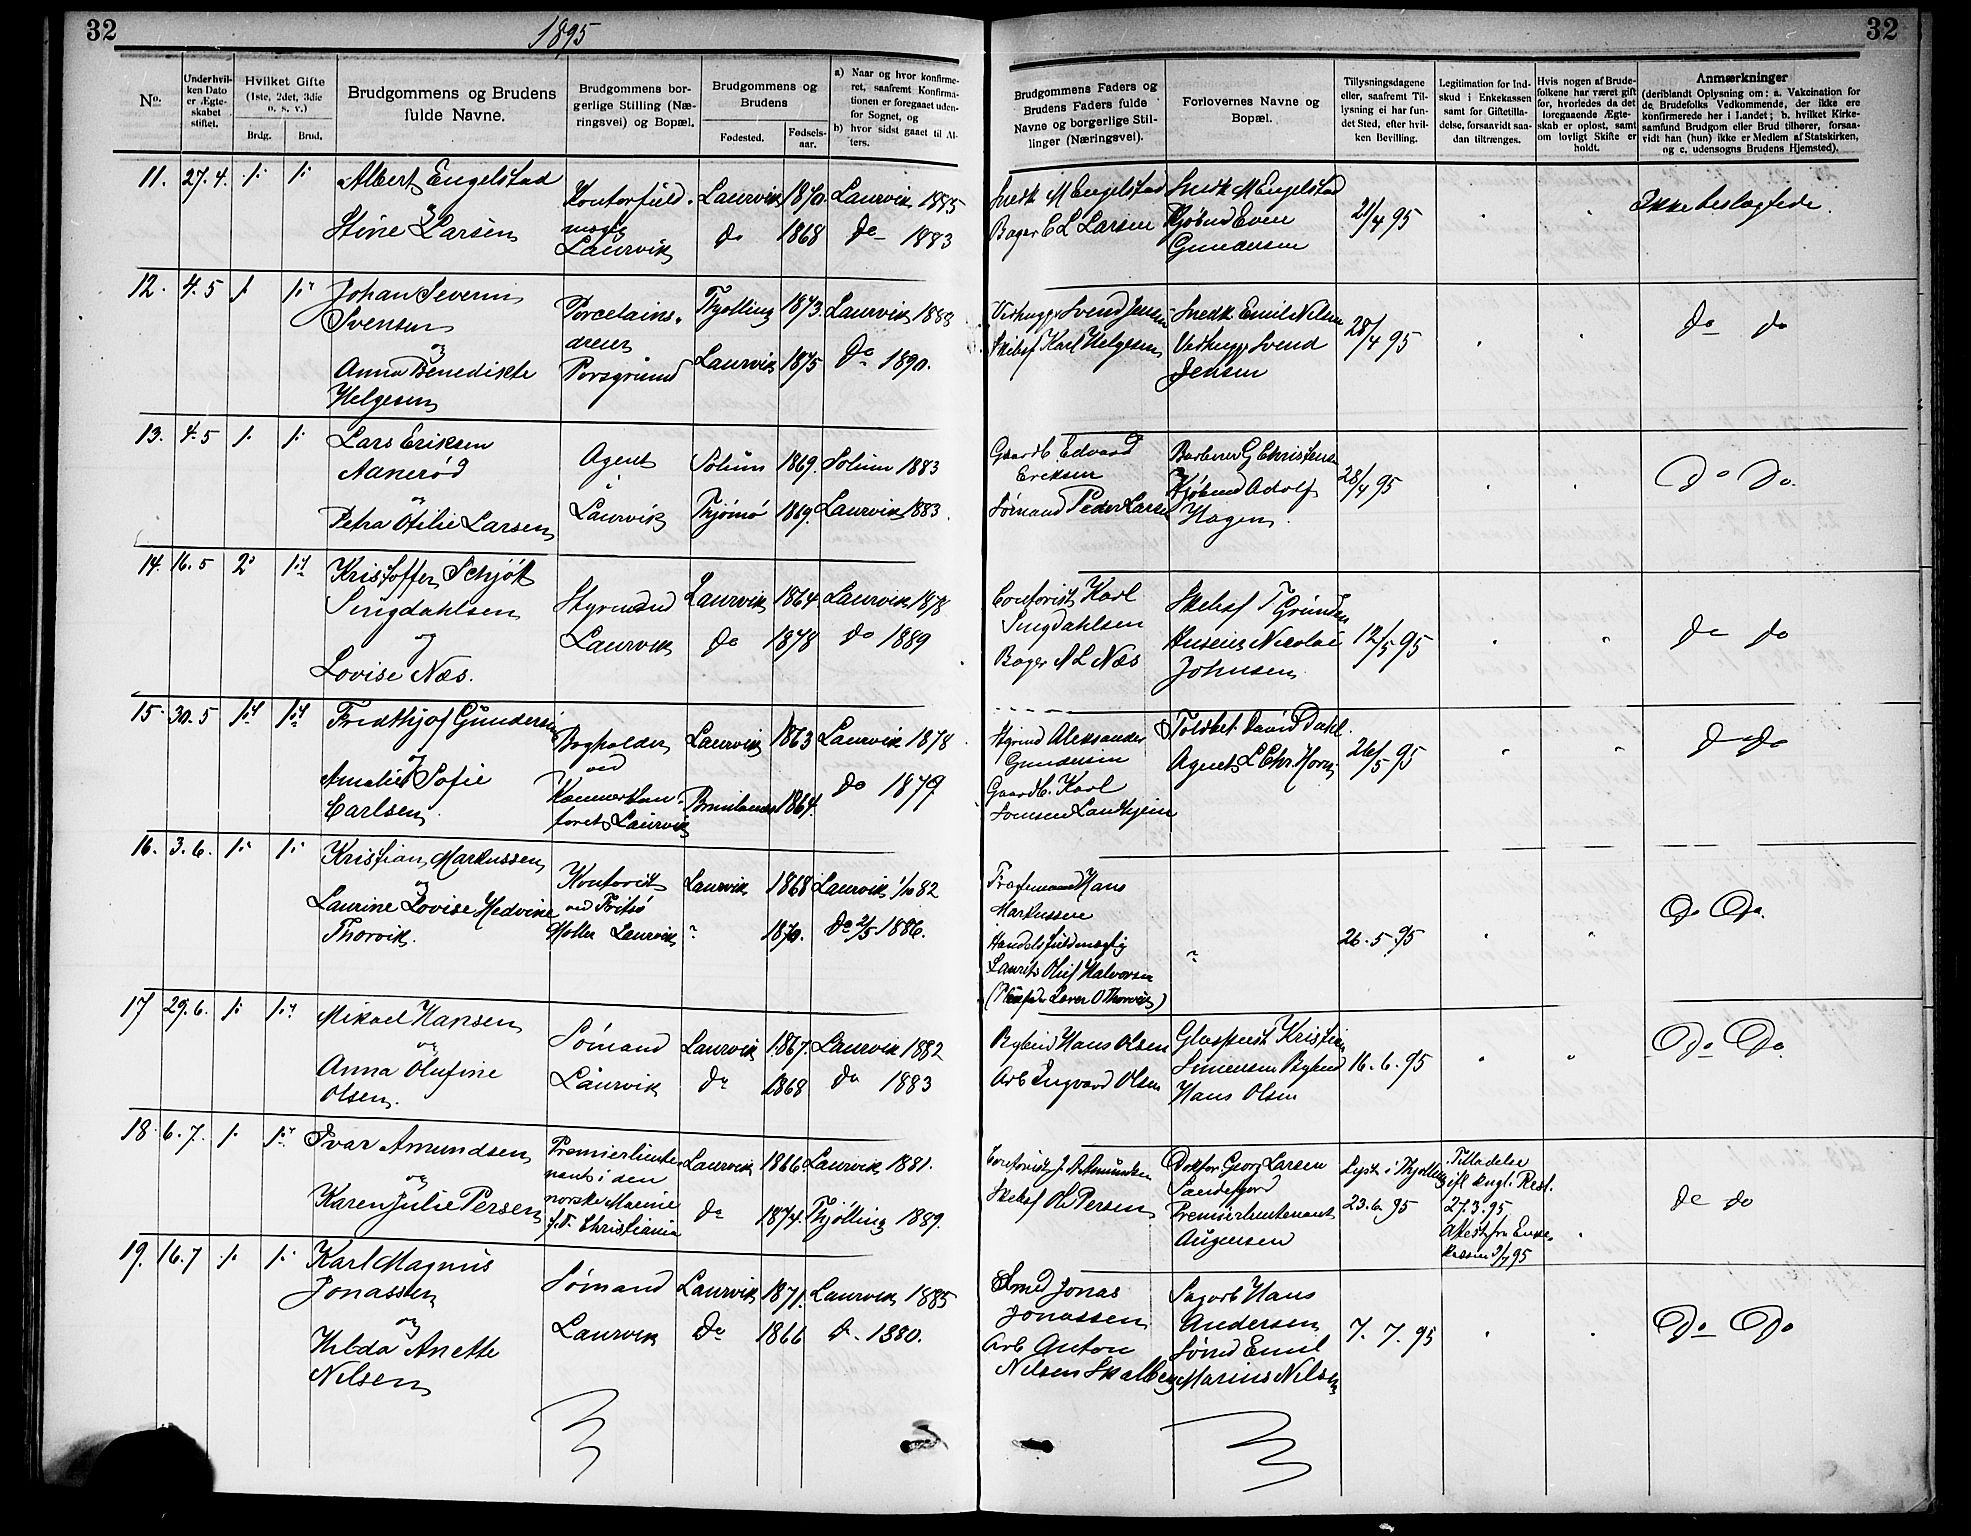 32
1895
No.
Underhvil-
ken Dato
er Ægte-
skabet
stiftet.
Hvilket Gifte
(1ste, 2det, 3die
o. s. v.)
Brdg.
Brud.
Brudgommens og Brudens
fulde Navne.
Brudgommens bor-
gerlige Stilling (Næ-
ringsvei) og Bopæl.
Brudgommens og
Brudens
Fødested.
Fødsels-
aar.
a) Naar og hvor konfirme-
ret, saafremt Konfirma-
tionen er foregaaet uden-
for Sognet, og
b) hvor sidst gaaet til Al-
ters.
11. 27.4. 1. 1. Albert Engelstad
og
Stine Larsen
Kontorfuld-
mægtig
Laurvik
Laurvik 1870 Laurvik 1885
do 1868 do 1883
12. 4.5 1. 1. Johan Severin
Svensen
og
Anna Benedikte
Helgesen
Porcelains-
dreier
Porsgrund
Thjølling 1873 Laurvik 1888
Laurvik 1875 do 1890.
13. 4.5 1. 1. Lars Eriksen
Aanerød
og
Petra Otilie Larsen
Agent
Laurvik
Solum 1869. Solum 1883
Thjømø 1869. Laurvik 1883.
14. 16.5 2. 1. Kristoffer Schjøt
Singdahlsen
og
Lovise Næs.
Styrmand
Laurvik
Laurvik 1864 Laurvik 1878
do 1878 do 1889
15. 30.5 1. 1. Fridthjof Gundersen
og
Amalie Sofie
Carlsen
Bogholder
ved
Laurvik
Laurvik 1863 Laurvik 1878
Brunlanes 1864. do 1879
16. 3.6. 1. 1. Kristian Markussen
og
Laurine Lovise Hedvine
Thorvik.
Kontorist
ved Fritsø
Møller Laurvik
Laurvik 1868 Laurvik 1/10 82
" 1870. do 2/5 1886.
17 29.6. 1. 1. Mikael Hansen
og
Anna Olufine
Olsen.
Sømand
Laurvik
Laurvik 1867. Laurvik 1882
do 1868 do 1883
18. 6.7. 1. 1. Ivar Amundsen
og
Karen Julie Persen
Premierlieute-
nant i den
norske Marine
f. T. Christiania
Laurvik 1866. Laurvik 1881.
do 1874. Thjølling 1889.
19. 16.7 1. 1. Karl Magnus
Jonassen
og
Hilda Anette
Nilsen
Sømand
Laurvik
Laurvik 1871. Laurvik 1885
do 1866 do 1880.
32
Brudgommens Faders og
Brudens Faders fulde
Navne og borgerlige Stil-
linger (Næringsvei).
Forlovernes Navne og
Bopæl.
Tillysningsdagene
eller, saafremt Til-
lysning ei har fun-
det Sted, efter hvil-
ken Bevilling.
Legitimation for Ind-
skud i Enkekassen
samt for Giftetilla-
delse, forsaavidt saa-
dan tiltrænges.
Hvis nogen af Brude-
folkene har været gift
før, hvorledes da det
foregaaende Ægte-
skab er opløst, samt
om lovligt Skifte er
holdt.
Anmærkninger
(deriblandt Oplysning om: a. Vakcination for
de Brudefolks Vedkommende, der ikke ere
konfirmerede her i Landet; b. hvilket Kirke-
samfund Brudgom eller Brud tilhører, forsaa-
vidt han (hun) ikke er Medlem af Statskirken,
og c. udensogns Brudens Hjemsted).
Snedk M Engelstad
Bager C L Larsen
Snedk M Engelstad
Kjøbmd Even
Gundersen
21/4 95
Ikke beslægtede.
Vedhugger Svend Jensen
Skibsf Karl Helgesen
Snedk Emil Nilsen
Vedhugger Svend
Jensen
28/4 95
do do
Gaardb. Edvard
Eriksen
Sømand Peder Larsen
Barberer G Christensen
Kjøbmd Adolf
Hagen.
28/4 95
do do.
Contorist Karl
Singdahlsen
Bager A L Næs
Skibsf
Huseier Nicolai
Johnsen
12/5 95
do do
Styrmd Aleksander
Gundersen
Gaardb. Karl
David Dahl.
Agent L Chr. Horn
26/5 95
do do
Hans
Markussen
Handelsfuldmægtig
Laurits Oluf Halvorsen
26.5.95
do do.
Hans Olsen
Arb Ingvard Olsen
Kristian
Simensen
Hans Olsen
16.6.95
do do.
Contorist J. A. Amundsen
Skibsf Ol. Persen
Doktor Georg Larsen
Sandefjord
Premierlieutenant
Lyst i Thjølling
23.6 95
Tilladelse
ifl kngl. Resl.
27.3.95.
Attest fra Enke-
kassen 3/7 95
do do
Smed Jonas
Jonassen
Arb Anton
Nilsen
Sagarb Hans
Andersen
Sømd Emil
Marius Nilsen
7. 7. 95
do do